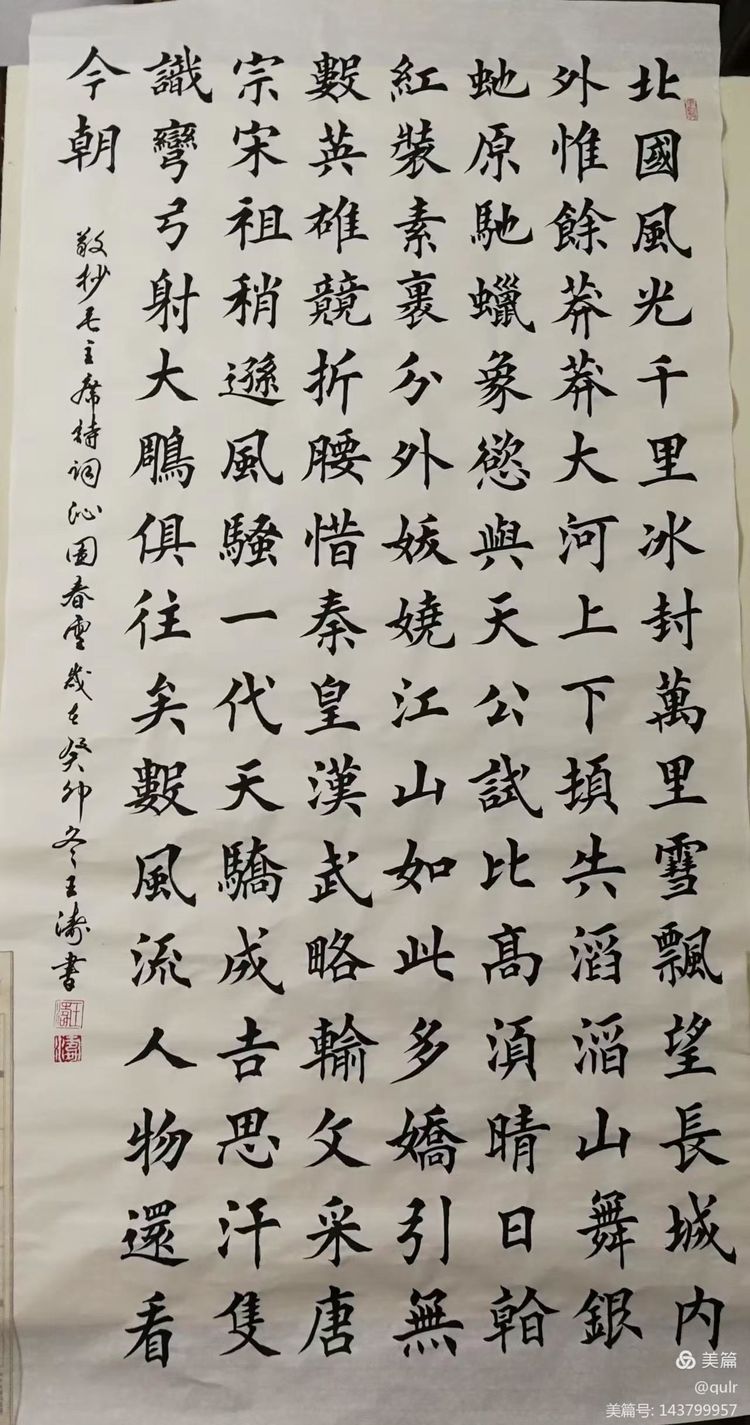 北國風光千里冰封萬里雪飄望長城内
外惟餘莽莽大河上下頓失滔滔山舞銀
虵原馳蠟象慾與天公試比高須晴日
紅裝素裹分外妖嬈江山如此多嬌引無
數英雄競折腰惜秦皇漢武略輸文采唐
宗宋祖稍遜風騷一代天驕成吉思汗隻
識彎弓射大鵰俱往矣數風流人物還看
今朝
敬抄毛主席詩詞沁園春雪歲在癸卯冬王濤書
美篇
@qulr
美篇号: 143799957